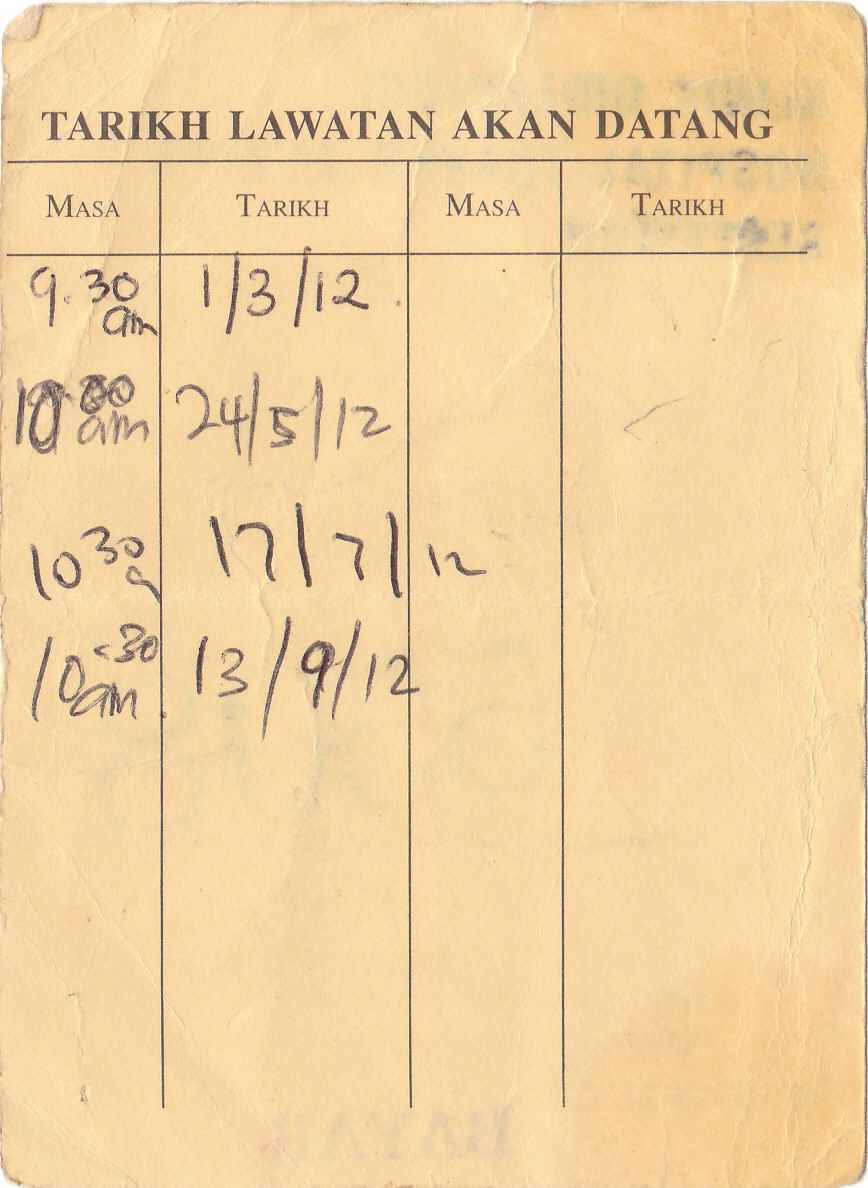 TARIKH LAWATAN AKAN DATANG
MASA TARIKH MASA TARIKH
9.30 am 1/3/12
10.00 am 24/5/12
10 30 a 17/7/12
10.30 am 13/9/12
BAYAR